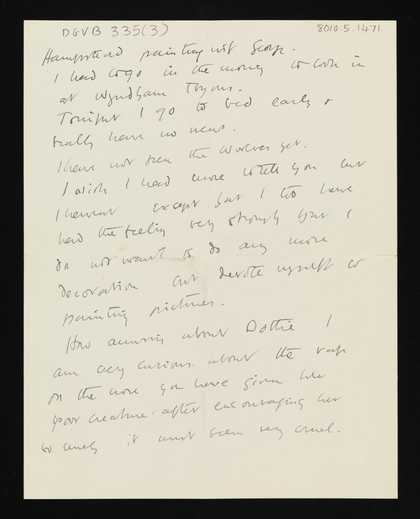 DGVB 335(3)
8010.5.1471
Hampstead painting with George.
I had to go in the morning to look in
at Wyndham Tryons.
Tonight I go to bed early &
really have no news.
I have not seen the Woolves yet.
I wish I had more to tell you but
I havent except that I too have
had the feeling very strongly that I
do not want to do any more
decoration but devote myself to
painting pictures.
How amusing about Dottie I
am very curious about the rap
on the nose you have given her
poor creature. after encouraging her
so it must seem very cruel.